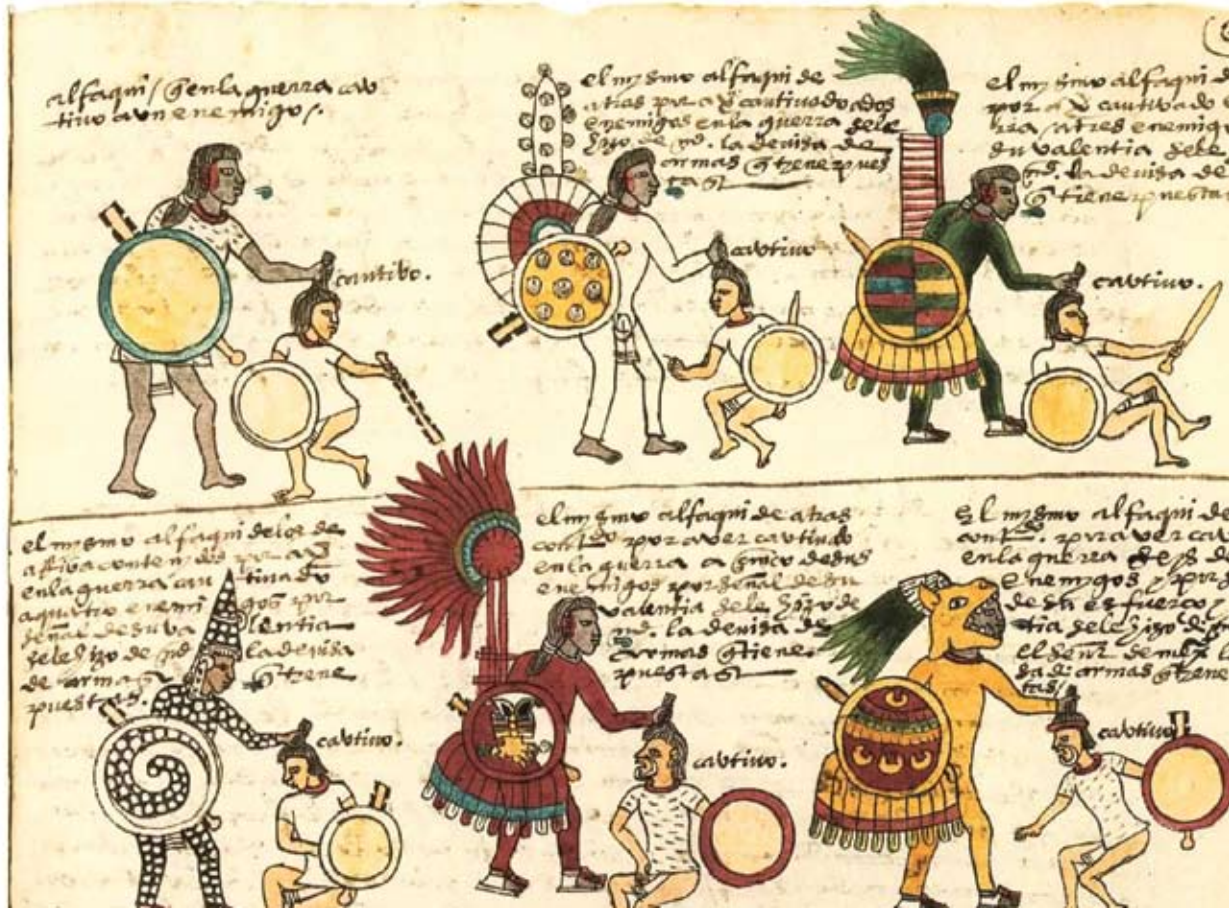 alfaqui / q̃ en la guerra cau
tivo a un enemigo /.
cautibo.
el mysmo alfaqui de
atras por aver cautivado a dos
enemigos en la guerra se le
hizo de md. la devisa de
armas q̃ tiene pues
tas
cautivo
el mysmo alfaqui d
por aver cautivado
a tres enemig
su valentia se le
md. la devisa de
q̃ tiene puesta
cautivo.
el mysmo alfaqui de los de
arriba contenydos por aver
en la guerra cautivado
a quatro enemigos por
señal de su valentia
se le hizo de md la devisa
de armas q̃ tiene
puestas.
cautivo.
el mysmo alfaqui de atras
contdo por aver cautivado
en la guerra a cinco de sus
enemigos por señal de su
valentia se le hizo de
md. la devisa de
armas q̃ tiene
puestas
cautivo.
El mysmo alfaqui de
cont. por aver cau
en la guerra seys de
enemygos y por
de su esfuerço y
tia se le hizo
el señor de mexº l
sa de armas q̃ tiene
tas /
cautivo